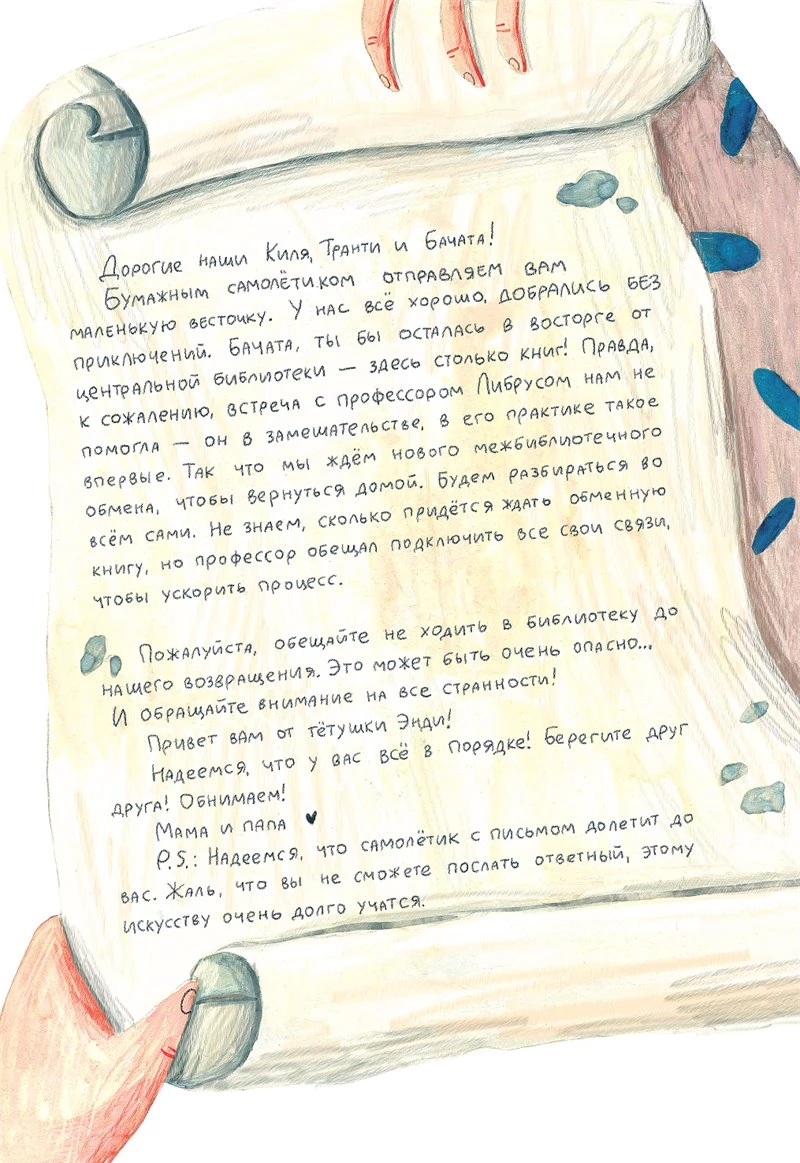 Дорогие наши Киля, Транти и Бачата!
Бумажным самолётиком отправляем вам
маленькую весточку. У нас всё хорошо, добрались без
приключений. Бачата, ты бы осталась в восторге от
центральной библиотеки — здесь столько книг! Правда,
к сожалению, встреча с профессором Либрусом нам не
помогла — он в замешательстве, в его практике такое
впервые. Так что мы ждём нового межбиблиотечного
обмена, чтобы вернуться домой. Будем разбираться во
всём сами. Не знаем, сколько придётся ждать обменную
книгу, но профессор обещал подключить все свои связи,
чтобы ускорить процесс.
Пожалуйста, обещайте не ходить в библиотеку до
нашего возвращения. Это может быть очень опасно...
И обращайте внимание на все странности!
Привет вам от тётушки Энди!
Надеемся, что у вас всё в порядке! Берегите друг
друга! Обнимаем!
Мама и папа ♥
P.S.: Надеемся, что самолётик с письмом долетит до
вас. Жаль, что вы не сможете послать ответный, этому
искусству очень долго учатся.